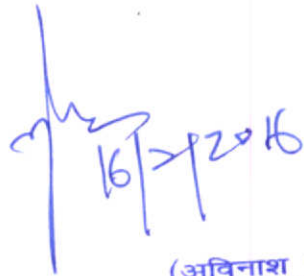 16/2/2016
(अविनाश